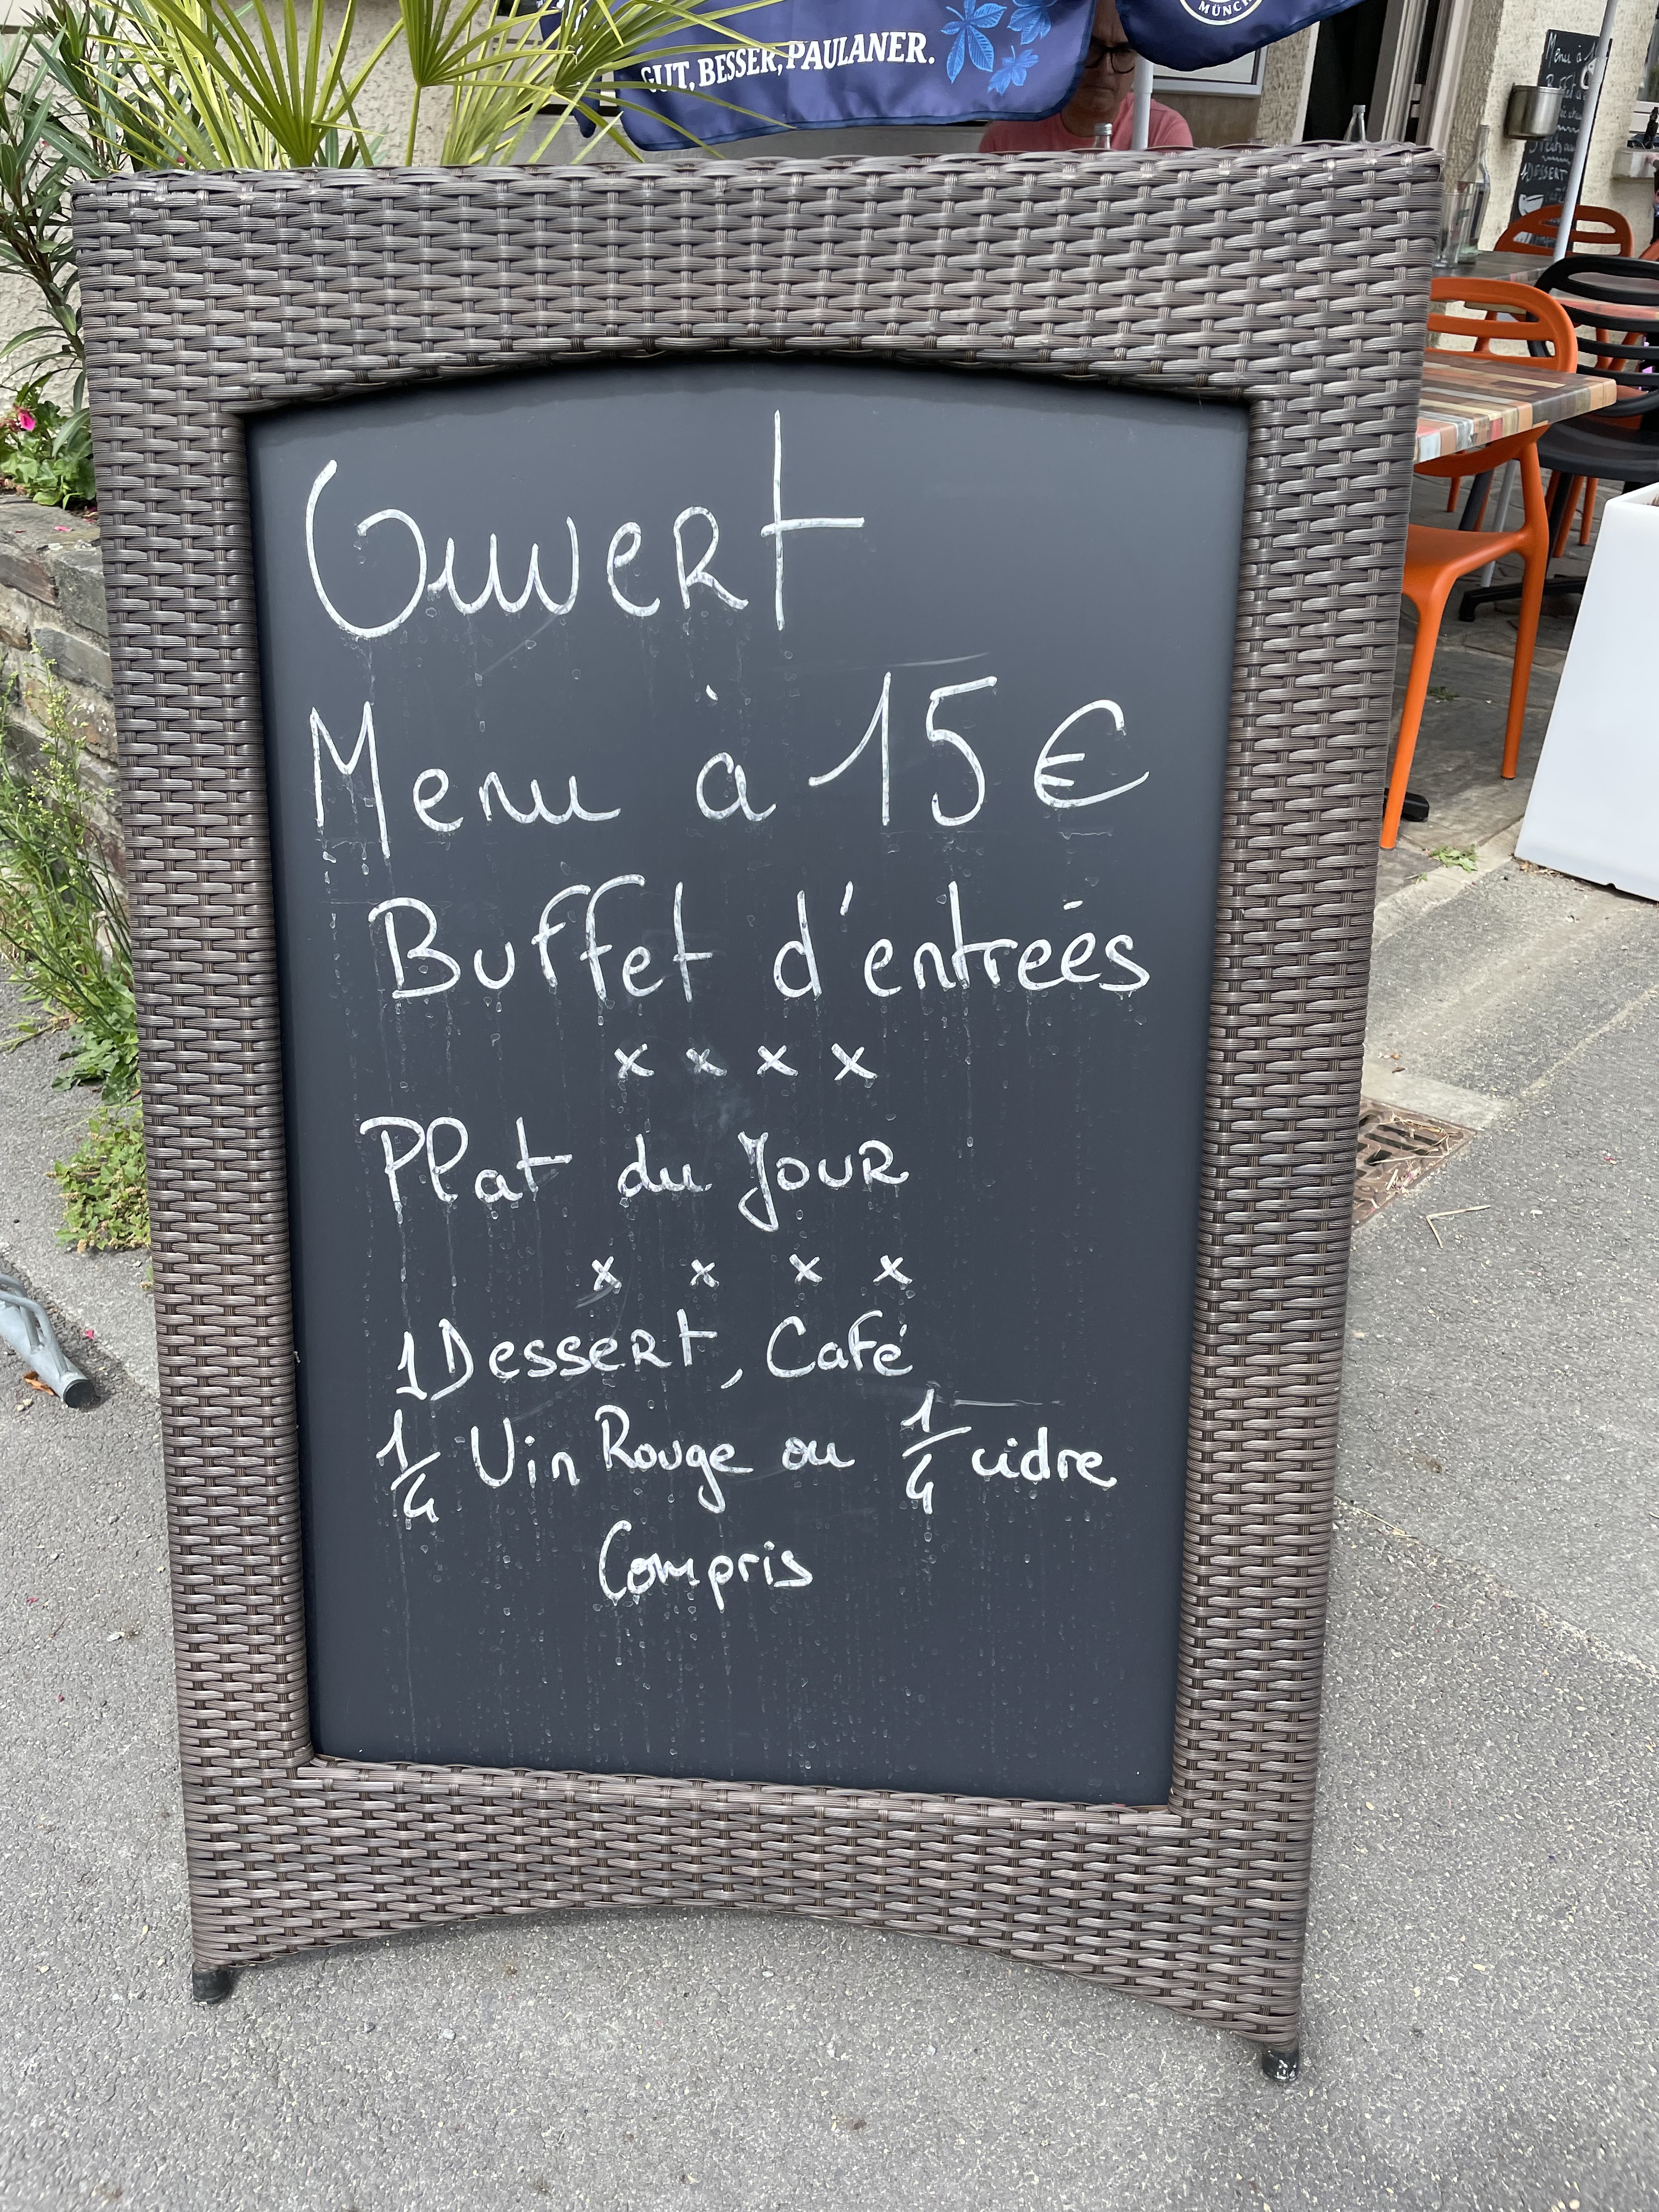 GUT, BESSER, PAULANER.
MÜNCH
Menu à
DESSERT
Ouvert
Menu à 15 €
Buffet d'entreés
x x x x
Plat du Jour
x x x x
1 Dessert, Café
1/4 Vin Rouge ou 1/4 cidre
Compris